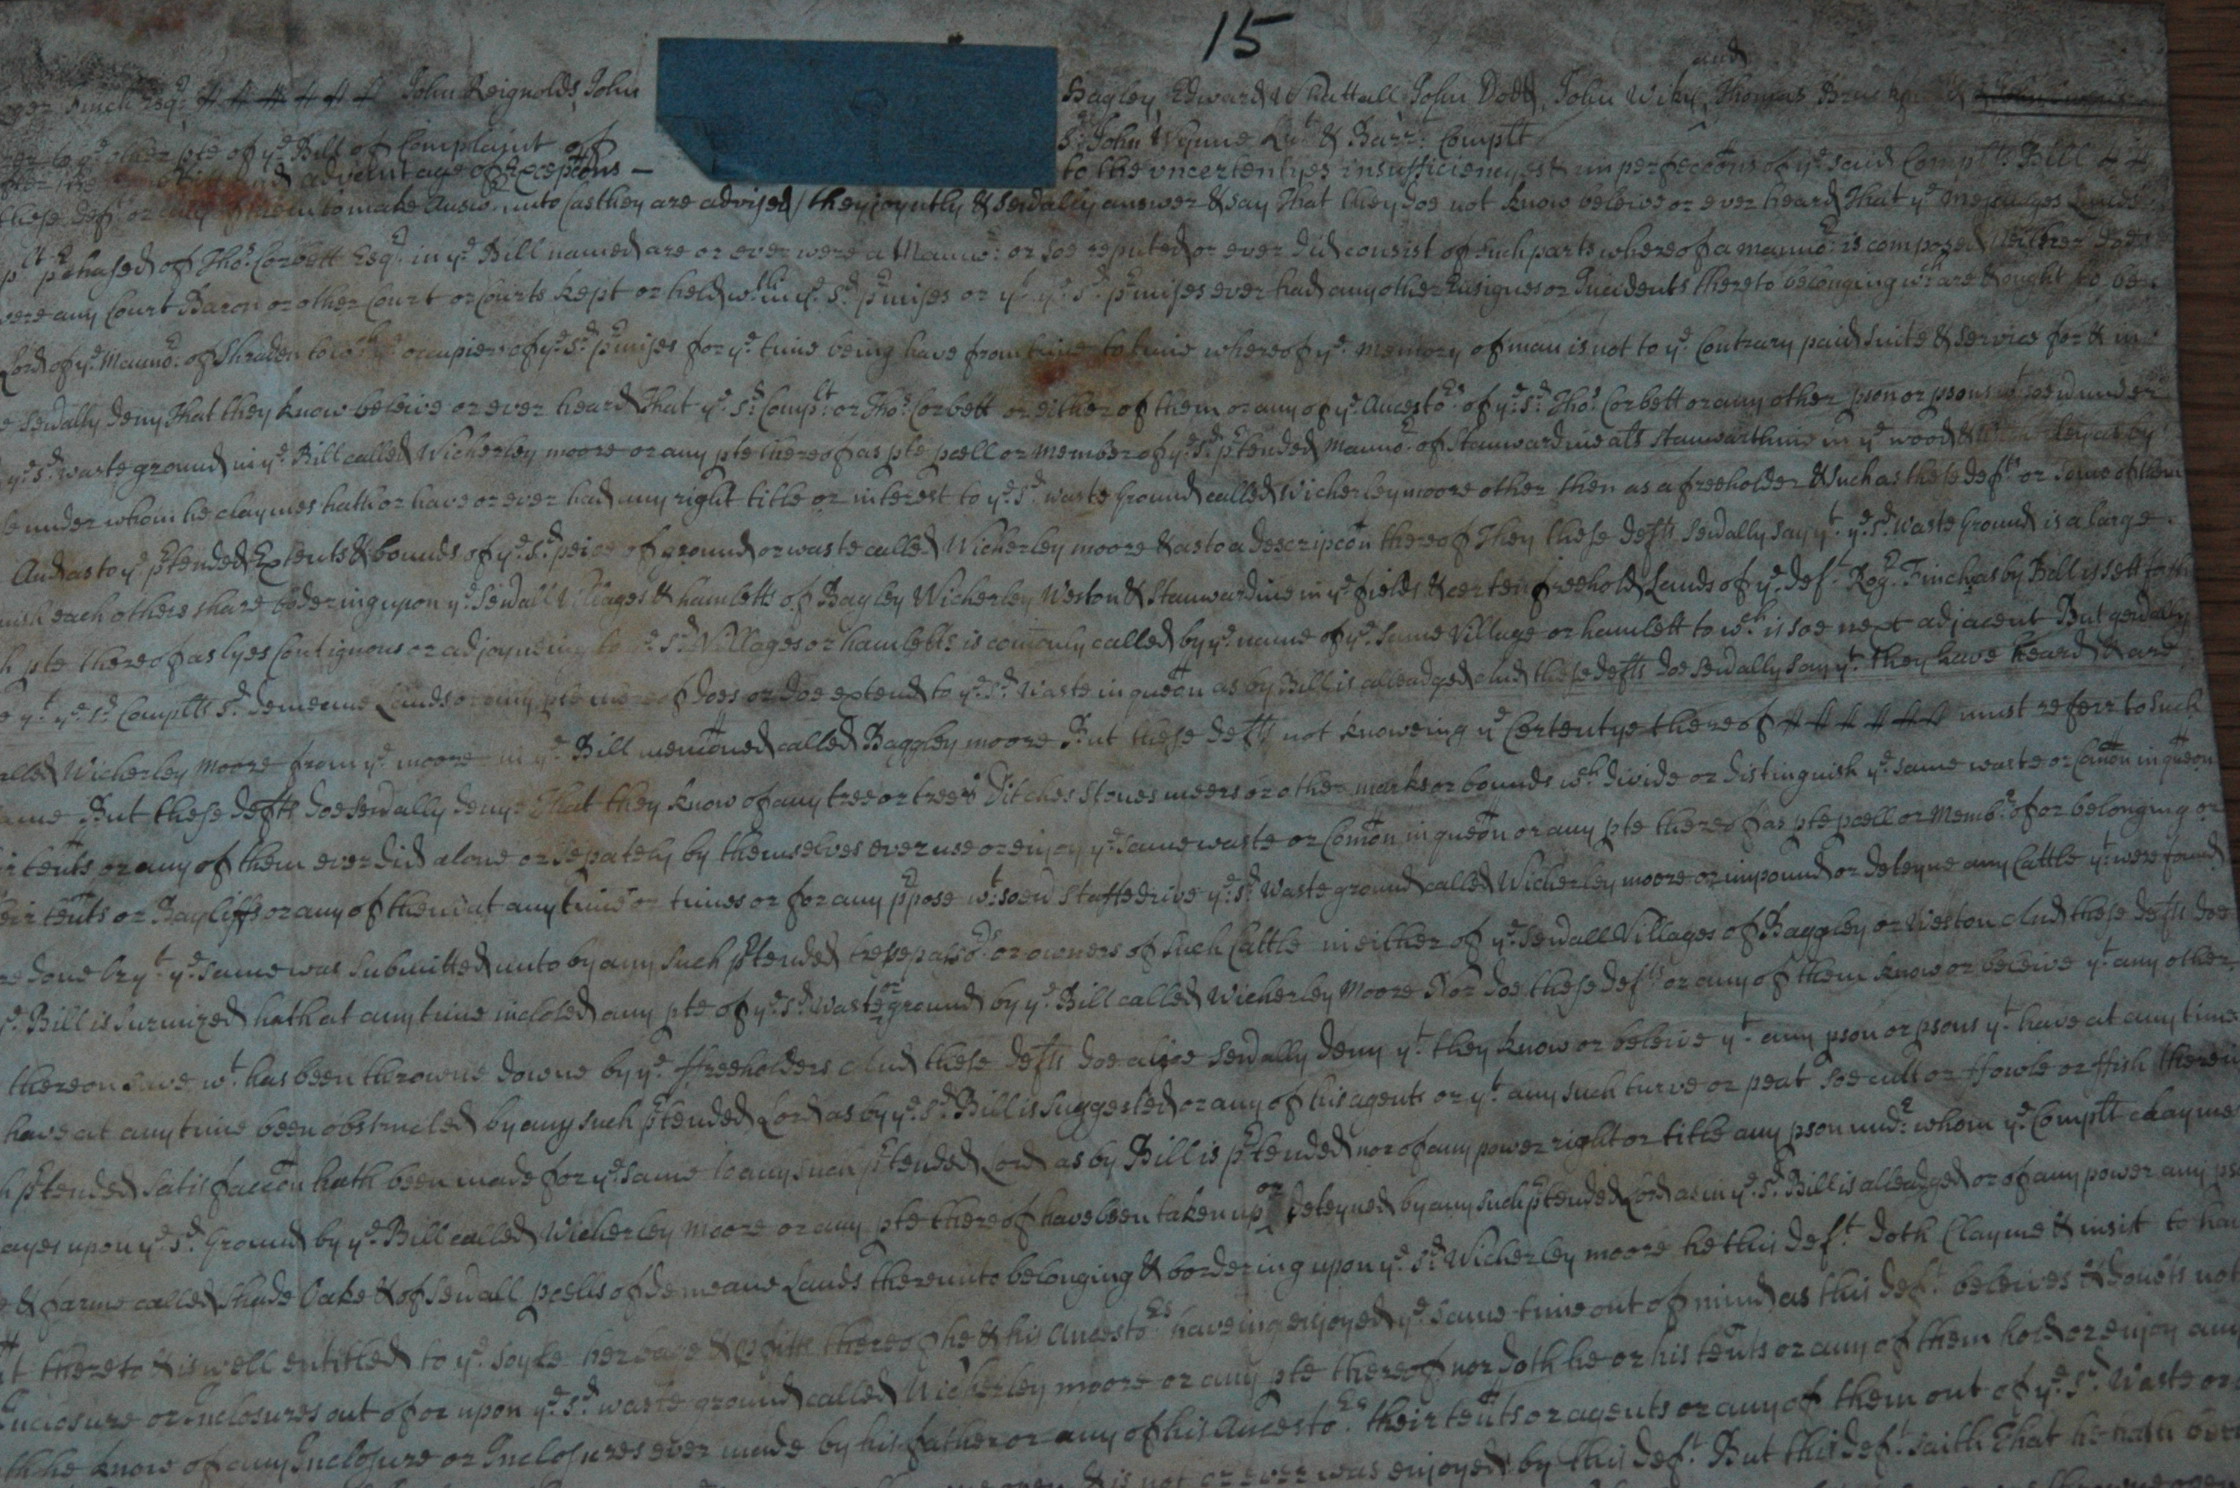 15
and
Finch Esqr John Reignolds, John Bagley, Edward Whattall, John Dodd, John Wike, Thomas
to ye other pte of ye Bill of Complaint of Sr John Wynne Knt & Barrt Complt
advantage of Excepcons to the uncertentyes insufficiencyes & imperfeccons of ye said Complts Bill
these defts or any of them to make Answ unto (as they are advised) they joyntly & sevally answer & say That they doe not know beleive or ever heard That ye Messuages Lands
pchased of Thos Corbett Esqr in ye Bill named are or ever were a Mannor or soe reputed or ever did consist of such parts whereof a mannor is composed Neither does
were any Court Baron or other Court or Courts kept or held wthin ye sd pmises or yt ye sd pmises ever had any other Ensignes or Incidents thereto belonging wch are & ought to be
Lord of ye Mannor of Shraden to wch ye occupiers of ye sd pmises for ye time being have from time to time whereof ye memory of man is not to ye Contrary paid suite & service for & in
sevally deny That they know beleive or ever heard That ye sd Complt or Thos Corbett or either of them or any of ye Ancestors of ye sd Thos Corbett or any other pson or psons wtsoevr under
ye sd waste ground in ye Bill called Wicherley moore or any pte thereof as pte pcell or Member of ye sd ptended Mannor of Stanwardine als Stanwarthine in ye wood & as by
under whom he claymes hath or have or ever had any right title or interest to ye sd waste Ground called Wicherley moore other then as a freeholder & such as these defts or some of them
And as to ye ptended Extents & bounds of ye sd peice of ground or waste called Wicherley moore & as to a descripcon thereof They these defts sevally say yt ye sd waste Ground is a large
each others share bodering upon ye sevall Villages & hamletts of Bagley Wicherley Weston & Stanwardine in ye fields & certen freehold Lands of ye deft Rogr Finch as by Bill is sett forth
pte thereof as lyes Contiguous or adjoyneing to ye sd Villages or hamletts is comonly called by ye name of ye same Village or hamlett to wch it is soe next adjacent But gevally
yt ye sd Complts sd demeane Lands or any pte thereof does or doe extend to ye sd waste in queon as by Bill is alleadged And these defts doe sevally say yt they have heard & are
called Wicherley moore from ye moore in ye Bill menconed called Baggley moore But these defts not knoweing ye Certentye thereof must referr to such
But these defts doe sevally deny That they know of any tree or trees Ditches Stones meers or other marks or bounds wch divide or distinguish ye same waste or Comon in queon
tents or any of them ever did alone or sepately by themselves ever use or enjoy ye same waste or Comon in queon or any pte thereof as pte pcell or Membr of or belonging or
tents or Bayliffs or any of them at any time or times or for any ppose wtsoevr drive ye sd waste ground called Wicherley moore or impound or deteyne any Cattle yt were found
done or yt ye same was submitted unto by any such ptended trespassors or owners of such Cattle in either of ye sevall Villages of Baggley or Weston And these defts doe
ye Bill is surmized hath at any time inclosed any pte of ye sd waste or ground by ye Bill called Wicherley Moore Nor doe these defts or any of them know or beleive yt any other
thereon save wt has been throwne downe by ye ffreeholders And these defts doe alsoe sevally deny yt they know or beleive yt any pson or psons yt have at any time
have at any time been obstructed by any such ptended Lord as by ye sd Bill is suggested or any of his agents or yt any such turve or peat soe cutt or ffowle or ffish therein
ptended satisfaccon hath been made for ye same to any such ptended Lord as by Bill is ptended nor of any power right or title any pson undr whom ye Complt claymes
upon ye sd Ground by ye Bill called Wicherley Moore or any pte thereof have been taken up or deteyned by any such ptended Lord as in ye sd Bill is alleadged or of any power any
& farme called Shade Oake & of sevall pcells of demeane Lands thereunto belonging & bordering upon ye sd Wicherley moore he this deft doth Clayme & insist to have
thereto & is well entitled to ye soyle herbage & pfitts thereof he & his Ancestors haveing enjoyed ye same time out of mind as this deft beleives & doubts not
Enclosure or Inclosures out of or upon ye sd waste ground called Wicherley moore or any pte thereof nor doth he or his tents or any of them hold or enjoy any
he know of any Inclosure or Inclosures ever made by his father or any of his Ancestors their tents or agents or any of them out of ye sd Waste or
& is not or ever was enjoyed by this deft But this deft saith That he hath